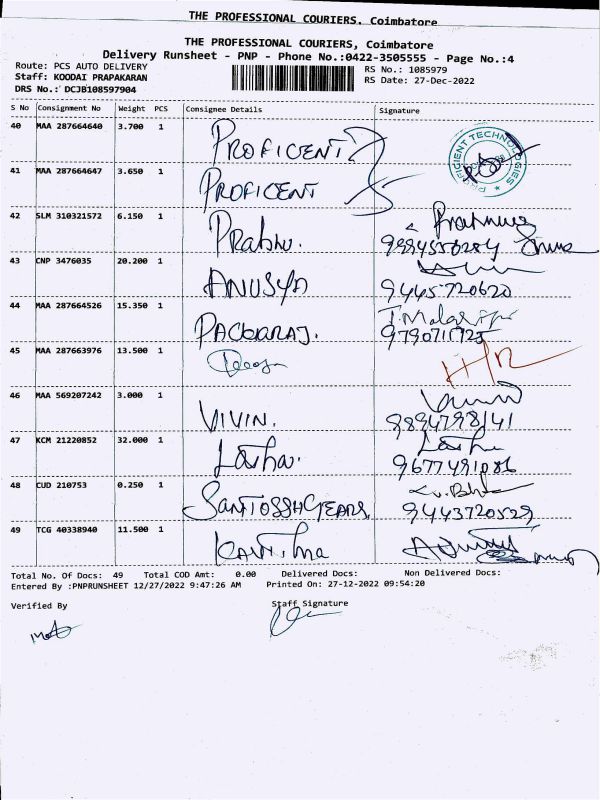 THE PROFESSIONAL COURIERS, Coimbatore
THE PROFESSIONAL COURIERS, Coimbatore
Delivery Runsheet - PNP - Phone No.:0422-3505555 - Page No.:4
Route: PCS AUTO DELIVERY
RS No.: 1085979
Staff: KOODAI PRAPAKARAN
RS Date: 27-Dec-2022
DRS No.: DCJB108597904
S No Consignment No Weight PCS Consignee Details Signature
40 MAA 287664640 3.700 1 PROFICENT
PROFICIENT TECHNOLOGIES
41 MAA 287664647 3.650 1 PROFICENT
42 SLM 310321572 6.150 1 Prabhu.
43 CNP 3476035 20.200 1 ANUSYA 9445720620
44 MAA 287664526 15.350 1 T. Malar 9790711725
45 MAA 287663976 13.500 1
46 MAA 569207242 3.000 1 VIVIN. 9894798141
47 KCM 21220852 32.000 1 Latha. Latha 9677491086
48 CUD 210753 0.250 1 SANTOSSH GEARS. 9443720529
49 TCG 40338940 11.500 1 Kavitha
Total No. Of Docs: 49 Total COD Amt: 0.00 Delivered Docs: Non Delivered Docs:
Entered By :PNPRUNSHEET 12/27/2022 9:47:26 AM Printed On: 27-12-2022 09:54:20
Verified By Staff Signature